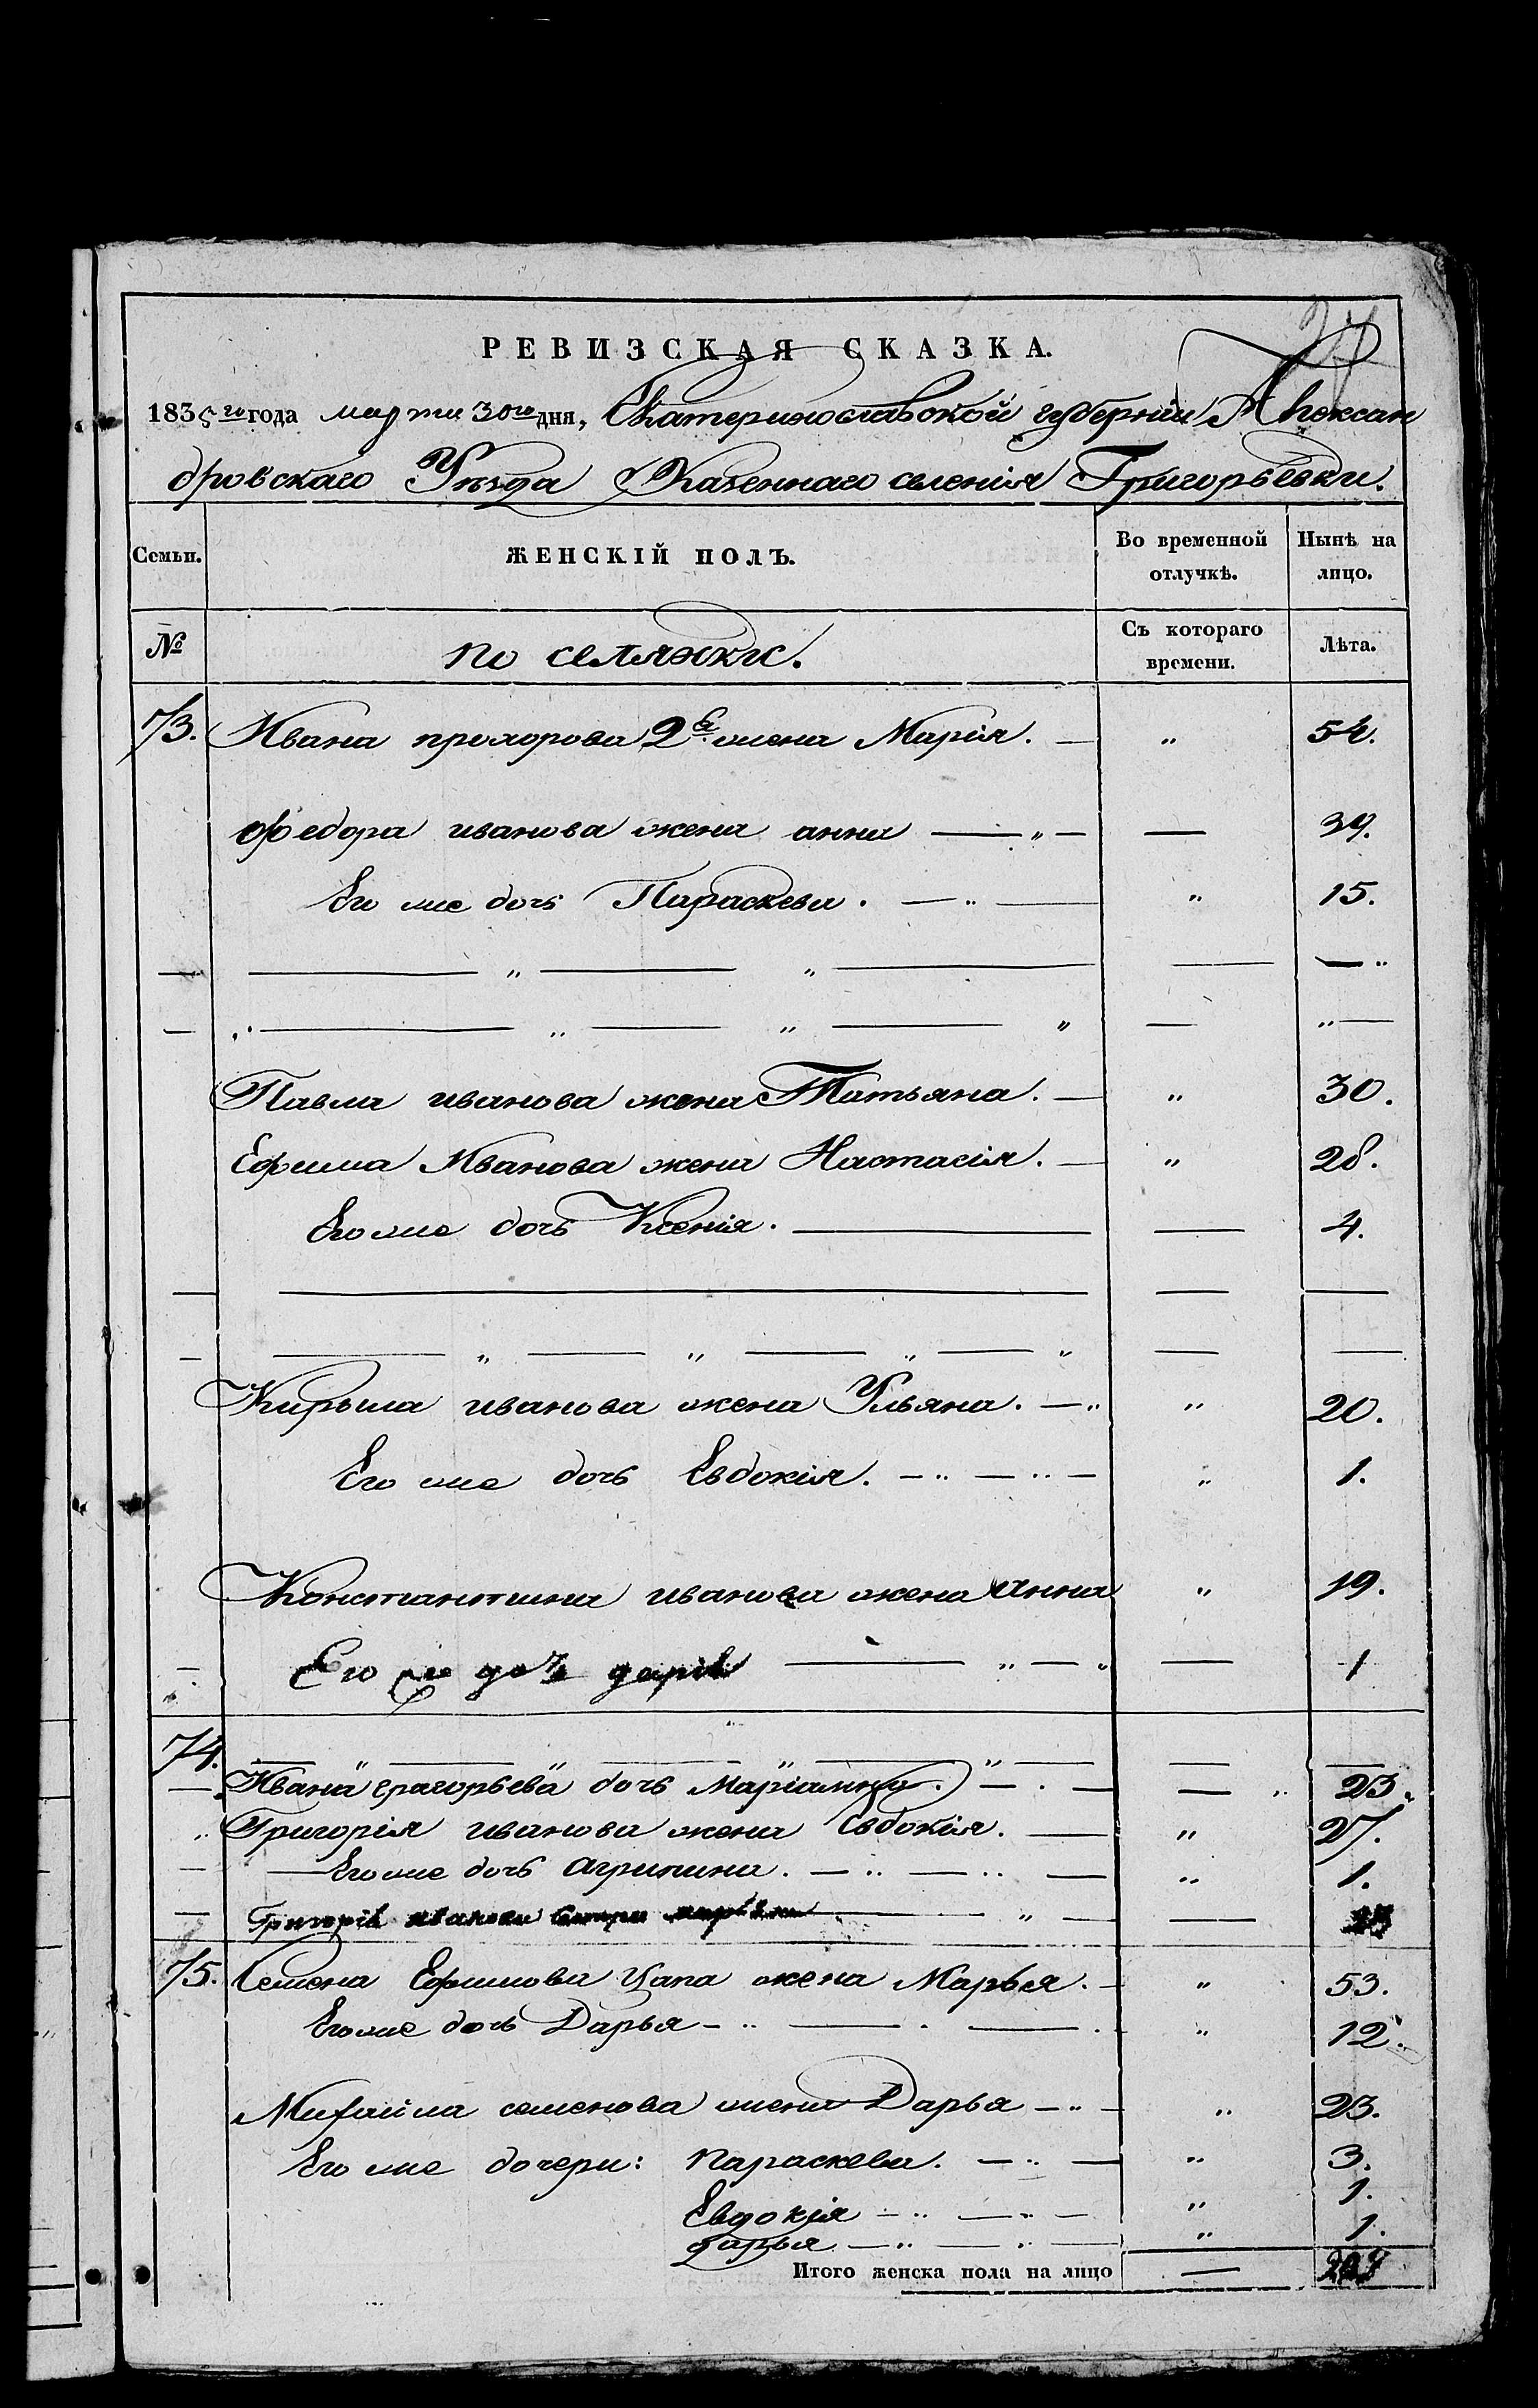 РЕВИЗСКАЯ СКАЗКА.
1835го года марта 30го дня, Екатеринославской губернии Алексан
дровскаго Уезда Казеннаго селения Григорьевки.
Семьи. ЖЕНСКІЙ ПОЛЪ. Во временной отлучкѣ. Нынѣ на лицо.
№ поселянки. Съ котораго времени. Лѣта.
73. Ивана прохорова 2я жена Марія. — „ 54.
федора иванова жена анна — „ — — 39.
Его же дочь Параскева. — „ — „ 15.
— — „ — „ — — — „
— „ — „ — „ — „ — „ —
Павла иванова жена Татьяна. — „ 30.
Ефима Иванова жена Настасія. — „ 28.
Его же дочь Ксенія. — — 4.
— — — —
— — „ — „ — „ — „ — —
Кирыла иванова жена Ульяна. — „ „ 20.
Его же дочь Евдокія. — „ — „ — „ 1.
Константина иванова жена Анна „ 19.
— Его же дочь дарія — „ — „ — 1
74. — „ — „ — „ — „ — — —
— Ивана григорьева дочь Маріамна. — . — — „ 23.
„ Григорія иванова жена Евдокія. — „ 27.
— — Его же дочь агрипина. — „ — „ — „ 1.
— Григорія иванова — „ — —
75. Семена Ефимова Цапа жена Марья. — „ 53.
Его же дочь Дарья — „ — . — . „ 12.
Михайла семенова жена Дарья — „ — „ 23.
Его же дочери: параскева. — „ — „ 3.
Евдокія — „ — „ — „ 1.
дарья — „ — „ — „ 1.
Итого женска пола на лицо —